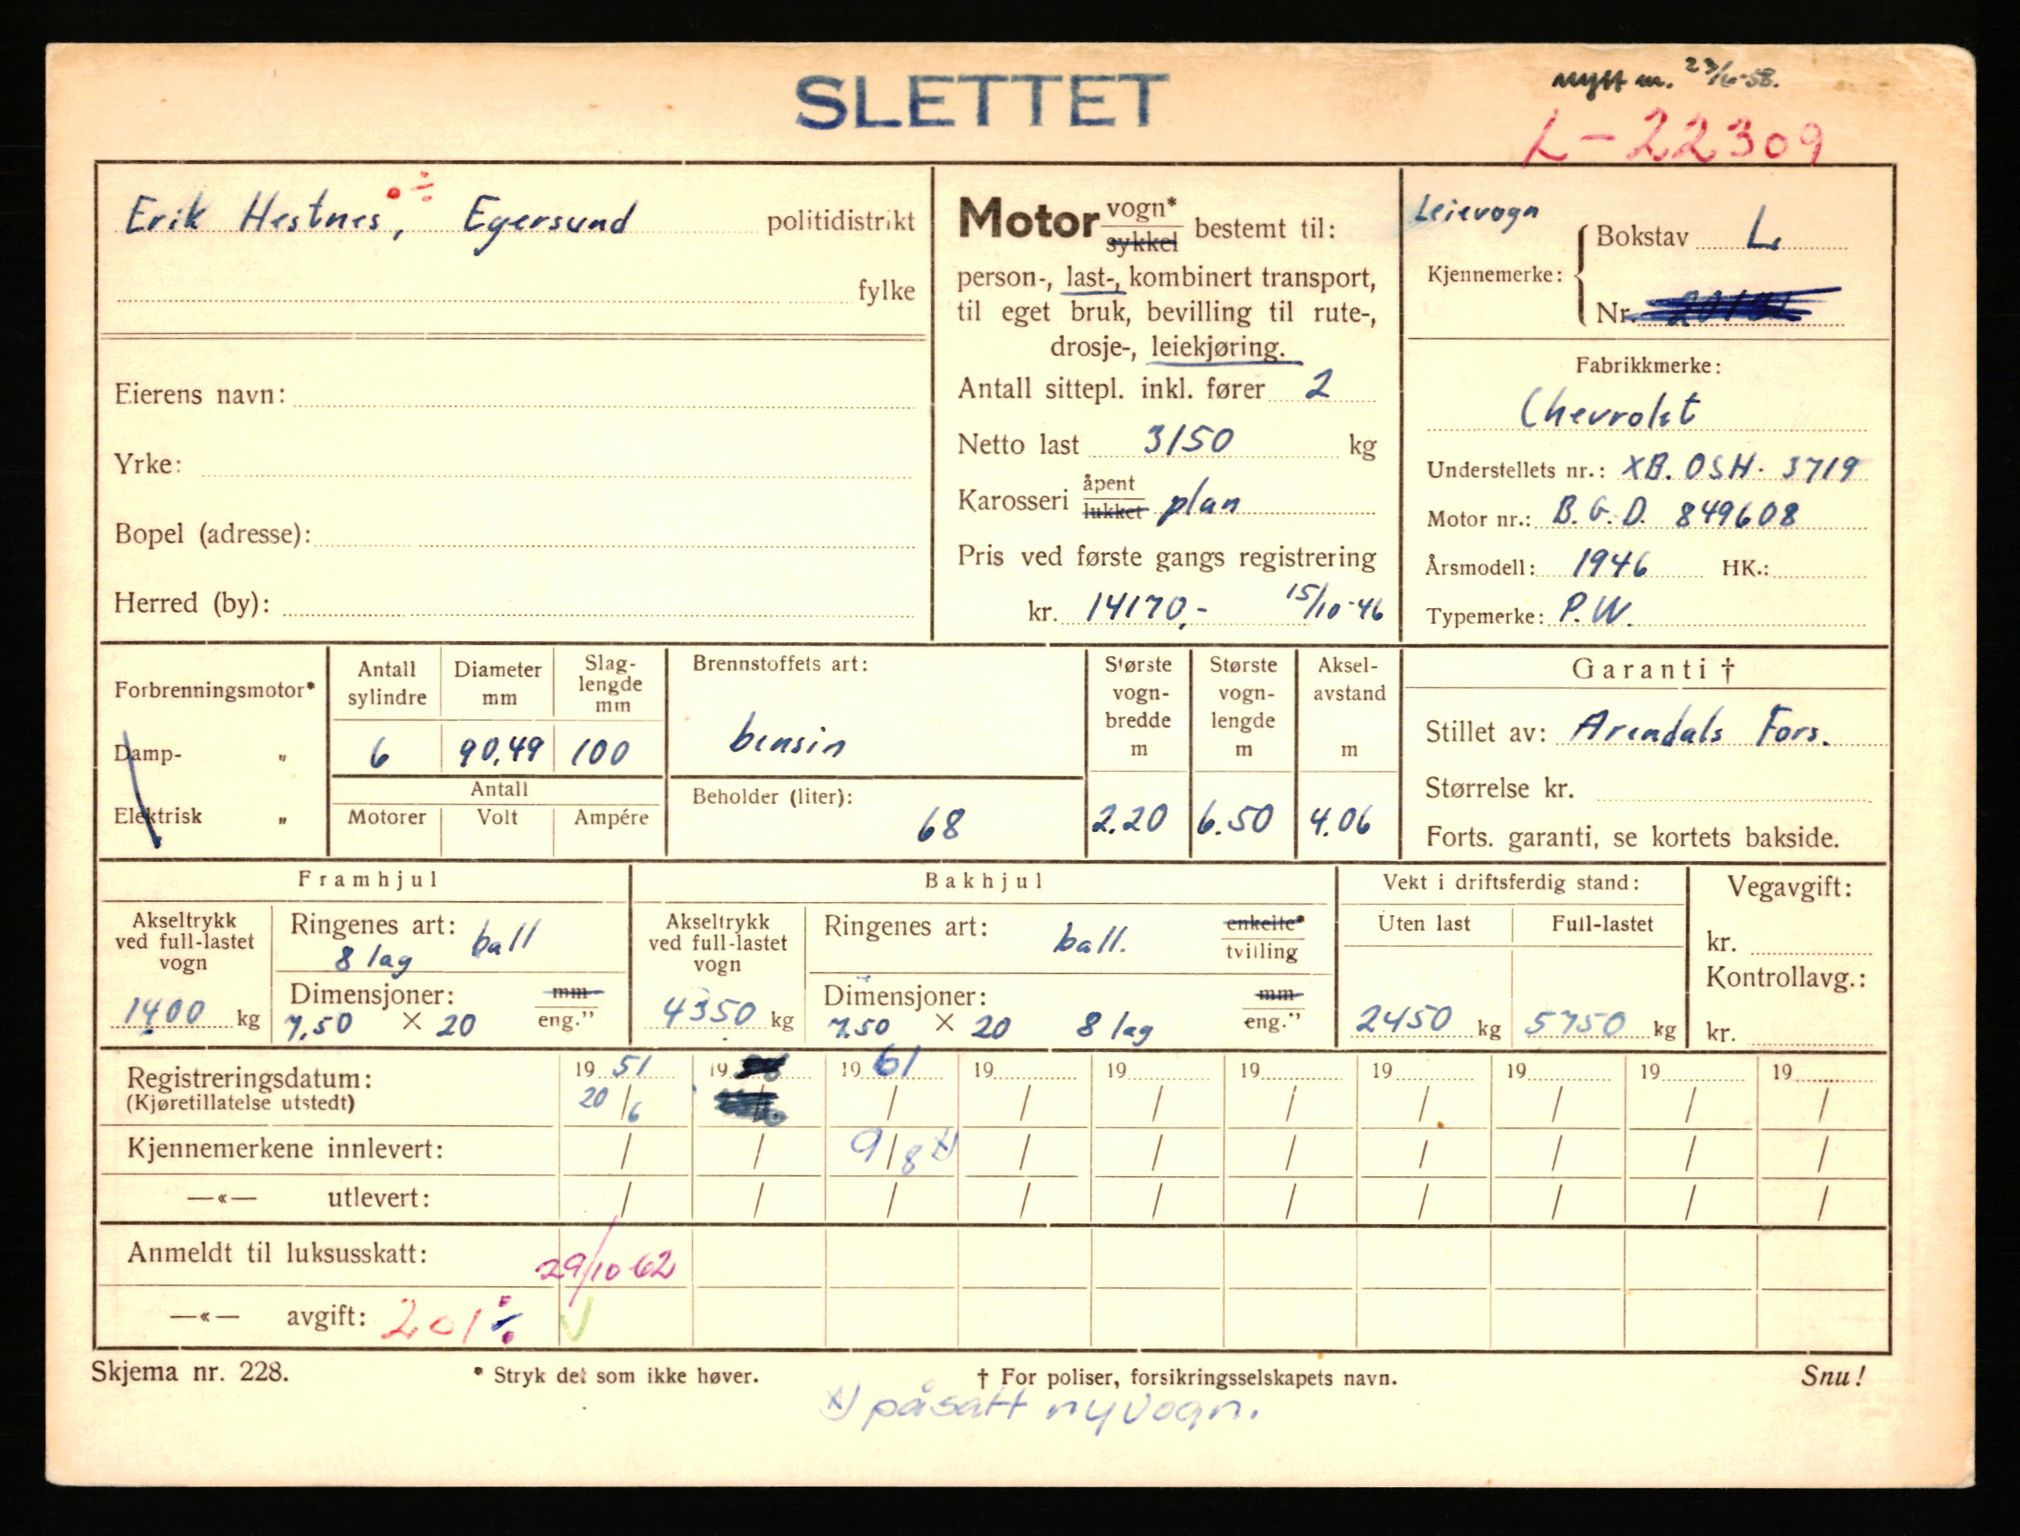 SLETTET
nytt nr. 23/6-58.
L-22309
Erik Hestnes, Egersund politidistrikt
fylke
Eierens navn:
Yrke:
Bopel (adresse):
Herred (by):
Motor vogn* sykkel bestemt til:
person-, last-, kombinert transport,
til eget bruk, bevilling til rute-,
drosje-, leiekjøring.
Antall sittepl. inkl. fører 2
Netto last 3150 kg
Karosseri åpent lukket plan
Pris ved første gangs registrering
kr. 14170,- 15/10-46
Leievogn
Bokstav L
Kjennemerke:
Nr.
Fabrikkmerke:
Chevrolet
Understellets nr.: XB. OSH. 3719
Motor nr.: B.G.D. 849608
Årsmodell: 1946 HK.:
Typemerke: P.W.
Forbrenningsmotor*
Damp- "
Elektrisk "
Antall sylindre
6
Diameter mm
90.49
Slag-lengde mm
100
Antall
Motorer Volt Ampére
Brennstoffets art:
bensin
Beholder (liter):
68
Største vogn-bredde m
2.20
Største vogn-lengde m
6.50
Aksel-avstand m
4.06
Garanti †
Stillet av: Arendals Fors.
Størrelse kr.
Forts. garanti, se kortets bakside.
Framhjul
Akseltrykk ved full-lastet vogn
1400 kg
Ringenes art: ball
8 lag
Dimensjoner: mm eng."
7.50 × 20
Bakhjul
Akseltrykk ved full-lastet vogn
4350 kg
Ringenes art: ball. enkelte* tvilling
Dimensjoner: mm eng."
7.50 × 20 8 lag
Vekt i driftsferdig stand:
Uten last Full-lastet
2450 kg 5750 kg
Vegavgift:
kr.
Kontrollavg.:
kr.
Registreringsdatum: 19 51 19 19 61 19 19 19 19 19 19 19
(Kjøretillatelse utstedt) 20/6 / / / / / / / / /
Kjennemerkene innlevert: / / 9/8 x) / / / / / / /
—«— utlevert: / / / / / / / / / /
Anmeldt til luksusskatt: 29/10-62
—«— avgift: 201
Skjema nr. 228.
* Stryk det som ikke høver.
† For poliser, forsikringsselskapets navn.
Snu!
x) påsatt ny vogn.